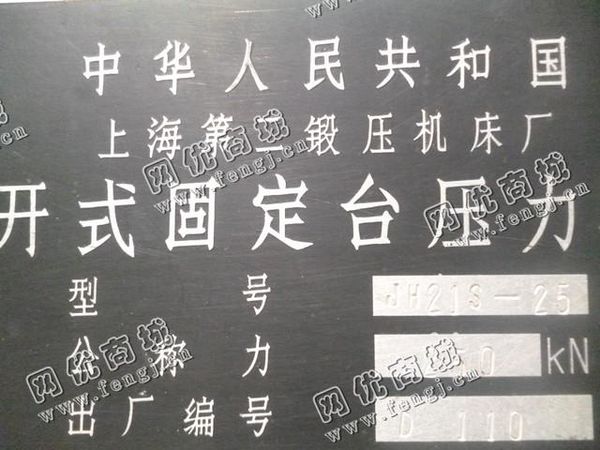 中华人民共和国
上海第二锻压机床厂
开式固定台压力
型 号 JH21S-25
公称力 kN
出厂编号 D 110
网优商城
www.fengj.cn
网优商城
www.fengj.cn
网优商城
www.fengj.cn
网优商城
www.fengj.cn
网优商城
www.fengj.cn
网优商城
www.fengj.cn